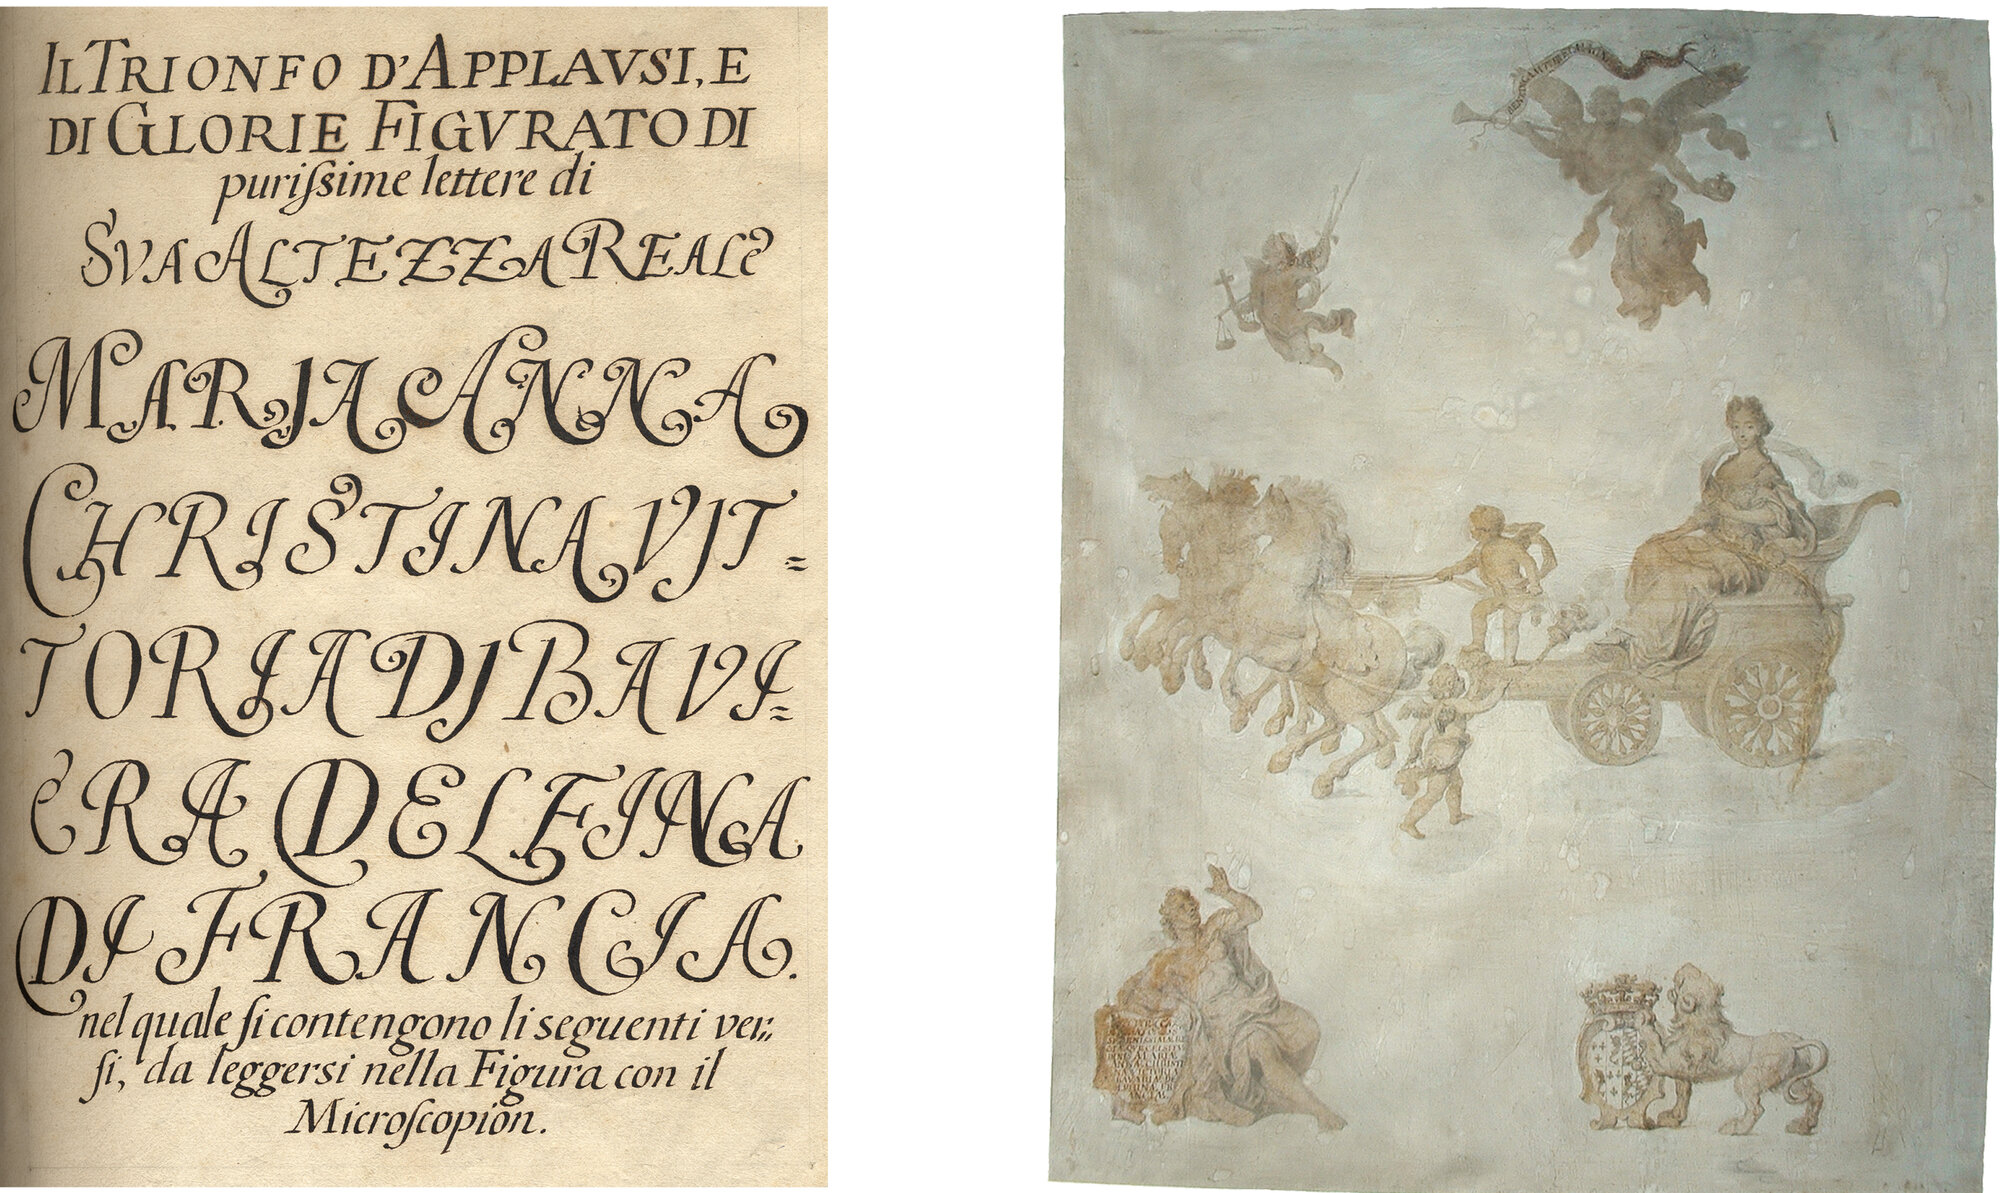 IL TRIONFO D'APPLAVSI, E
DI GLORIE FIGVRATO DI
puriſsime lettere di
SVA ALTEZZA REALE
MARIA ANNA
CHRISTINA VIT=
TORIA DI BAVI=
ERA DELFINA
DI FRANCIA.
nel quale ſi contengono li seguenti ver=
ſi, da leggersi nella Figura con il
Microſcopion.
ANNÆ CHRISTI
BAVARIÆ DE